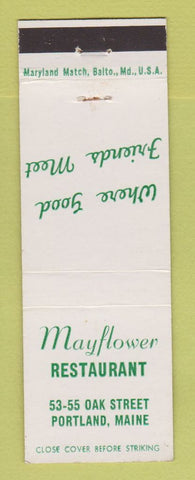 Maryland Match, Balto., Md., U.S.A.
Where Good
Friends Meet
Mayflower
RESTAURANT
53-55 OAK STREET
PORTLAND, MAINE
CLOSE COVER BEFORE STRIKING